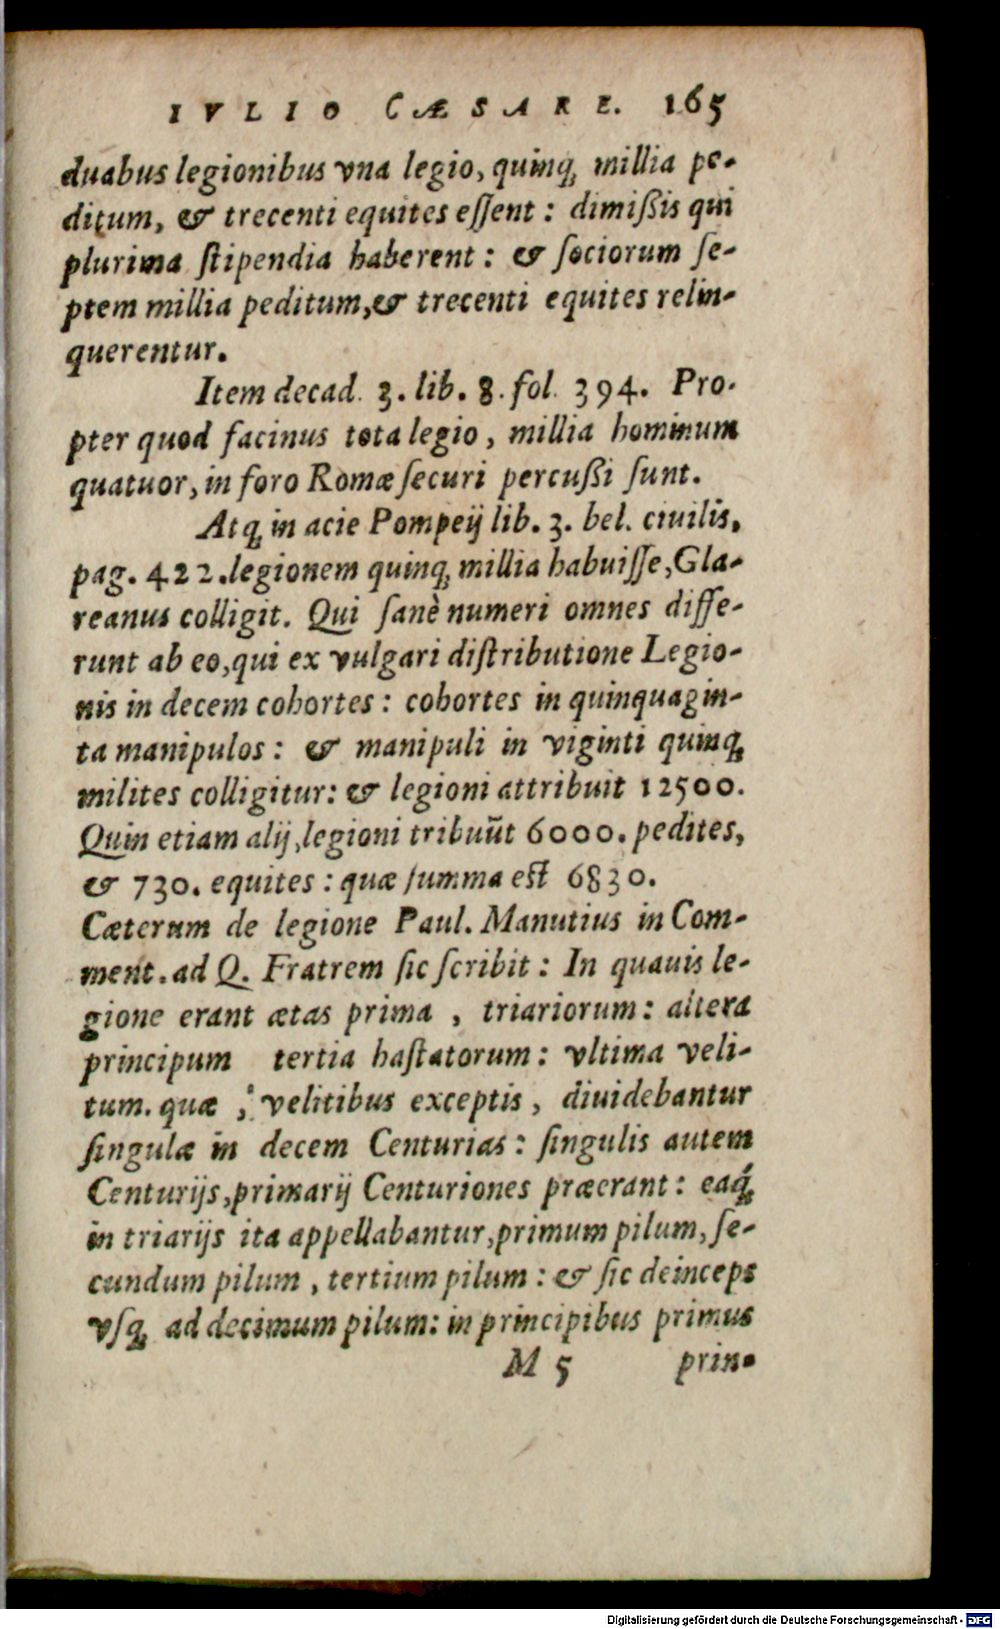 IVLIO CÆSARE. 165
duabus legionibus vna legio, quinq́; millia pe-
ditum, & trecenti equites eſſent: dimißis qui
plurima ſtipendia haberent: & ſociorum ſe-
ptem millia peditum,& trecenti equites relin-
querentur.
Item decad. 3. lib. 8. fol. 394. Pro-
pter quod facinus tota legio, millia hominum
quatuor, in foro Romæ ſecuri percußi ſunt.
Atq; in acie Pompeij lib. 3. bel. ciuilis,
pag. 422. legionem quinq; millia habuiſſe, Gla-
reanus colligit. Qui ſanè numeri omnes diffe-
runt ab eo, qui ex vulgari diſtributione Legio-
nis in decem cohortes: cohortes in quinquagin-
ta manipulos: & manipuli in viginti quinq;
milites colligitur: & legioni attribuit 12500.
Quin etiam alij, legioni tribuũt 6000. pedites,
& 730. equites: quæ ſumma eſt 6830.
Cæterum de legione Paul. Manutius in Com-
ment. ad Q. Fratrem ſic ſcribit: In quauis le-
gione erant ætas prima, triariorum: altera
principum tertia haſtatorum: vltima veli-
tum. quæ, velitibus exceptis, diuidebantur
ſingulæ in decem Centurias: ſingulis autem
Centurijs, primarij Centuriones præerant: eaq́;
in triarijs ita appellabantur, primum pilum, ſe-
cundum pilum, tertium pilum: & ſic deinceps
vſq; ad decimum pilum: in principibus primus
M 5 prin-
Digitalisierung gefördert durch die Deutsche Forschungsgemeinschaft - DFG